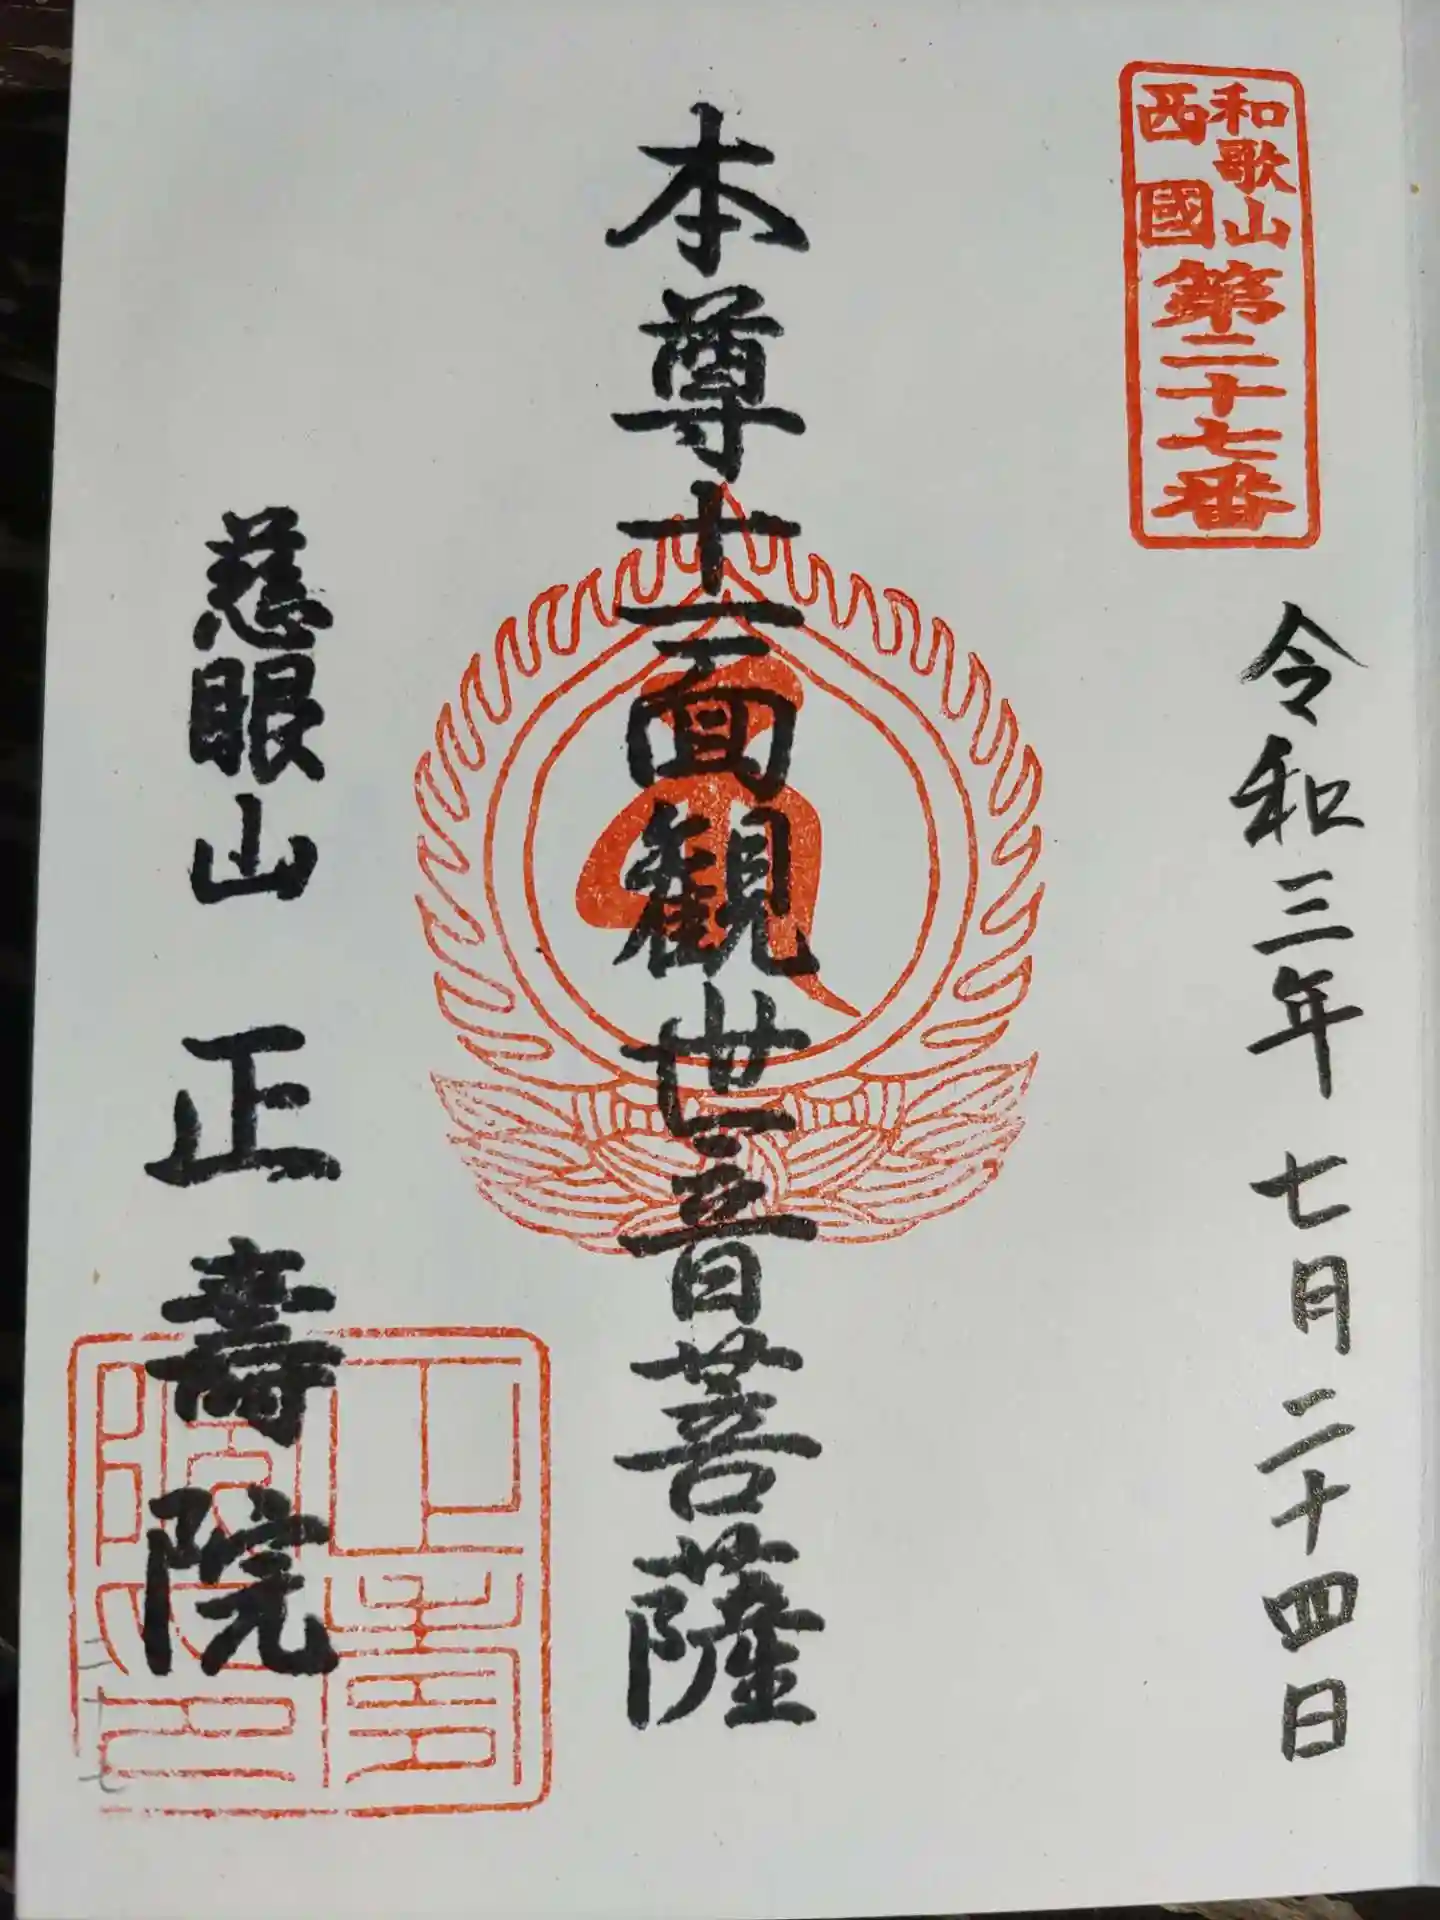 和歌山
西國
第二十七番
令和三年 七月二十四日
本尊十一面観世音菩薩
慈眼山 正壽院
正壽
院印